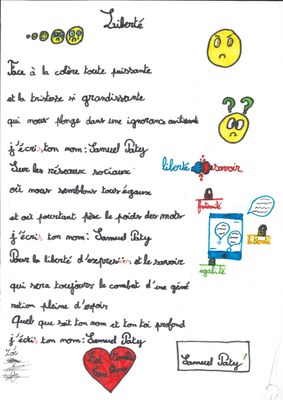 Liberté
Face à la colère toute puissante
et la tristesse si grandissante
qui nous plonge dans une ignorance avilissante
j'écris ton nom : Samuel Paty
Sur les réseaux sociaux
liberté savoir
où nous semblons tous égaux
fraternité
et où pourtant pèse le poids des mots
j'écris ton nom : Samuel Paty
liberté
Pour la liberté d'expression et le savoir
égalité
qui sera toujours le combat d'une géné
ration pleine d'espoir
Quel que soit ton nom et ton toi profond
j'écris ton nom : Samuel Paty
Zoé
Samuel Paty !